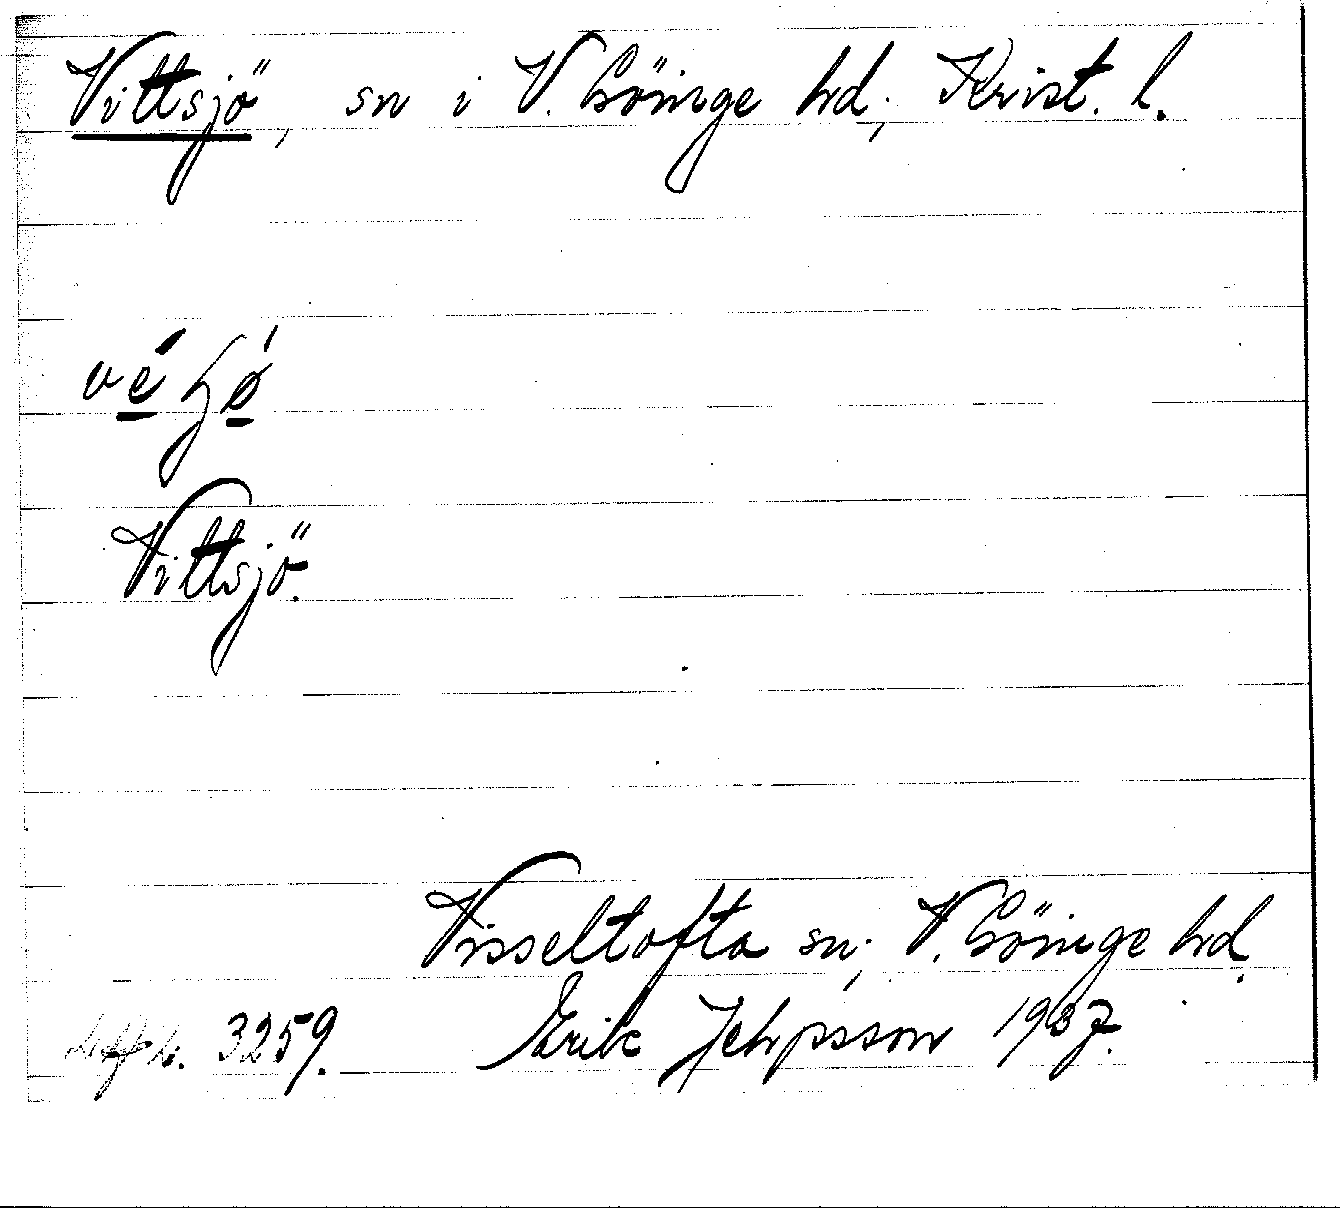 Vittsjö, sn i V. Göinge hd, Krist. l.
Vittsjö.
Visseltofta sn, V. Göinge hd.
3259. Erik Jeppsson 1937.